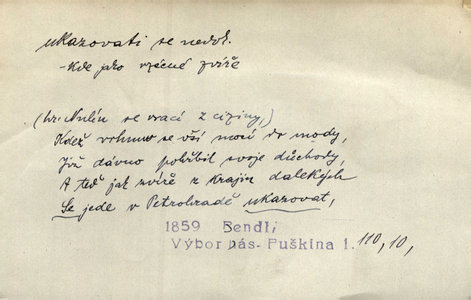 ukazovati se nedok.
- kde jako vzácné zvíře
(hr. Nulin se vrací z ciziny,)
Když vrhnuv se vší mocí do mody,
Již dávno pohřbil svoje důchody,
A teď jak zvíře z krajin dalekých
Se jede v Petrohradě ukazovat,
1859 Bendl,
Výbor bás. Puškina 1. 110, 10,